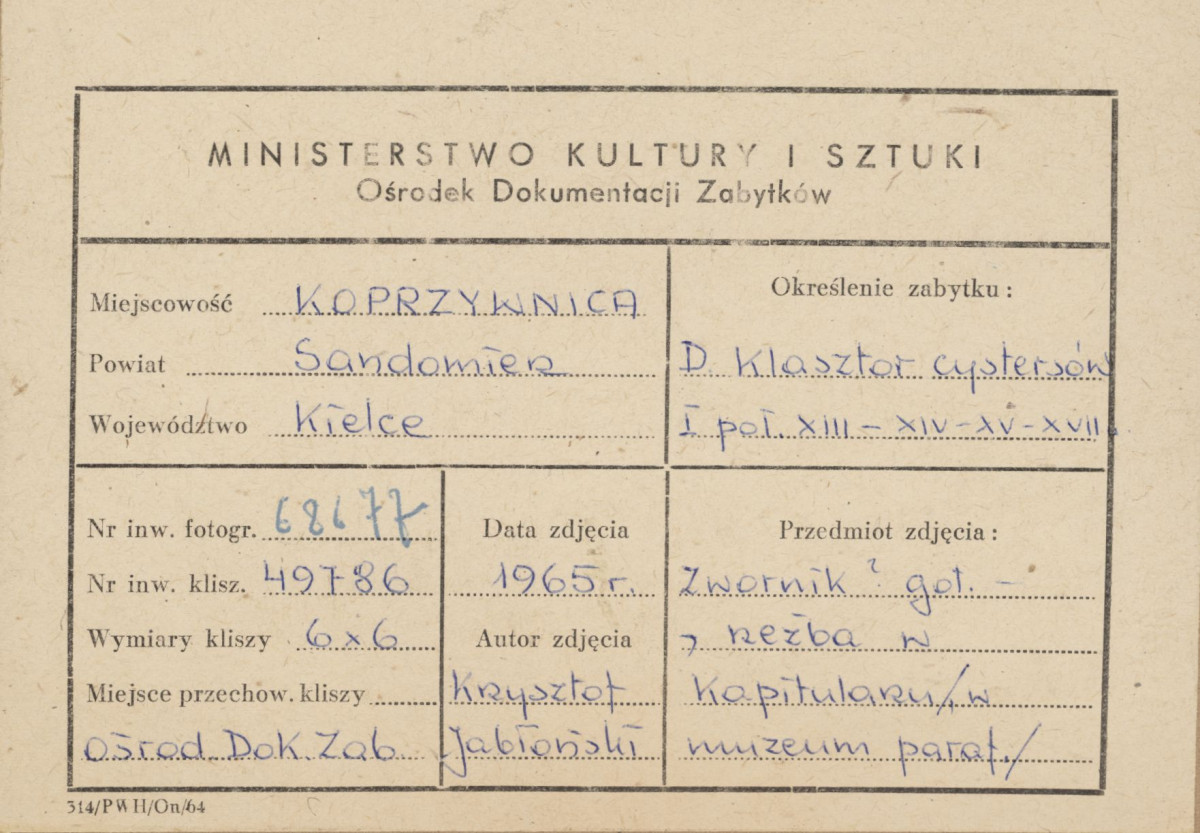 MINISTERSTWO KULTURY I SZTUKI
Ośrodek Dokumentacji Zabytków
Miejscowość KOPRZYWNICA
Powiat Sandomierz
Województwo Kielce
Określenie zabytku:
D. Klasztor cystersów
I poł. XIII – XIV – XV – XVII.
Nr inw. fotogr. 68677
Nr inw. klisz. 49786
Wymiary kliszy 6x6
Miejsce przechow. kliszy
ośrod. Dok. Zab.
Data zdjęcia
1965 r.
Autor zdjęcia
Krzysztof
Jabłoński
Przedmiot zdjęcia:
Zwornik ? got. –
, rzeźba w
Kapitularzu /, w
muzeum paraf. /
314/PWH/On/64